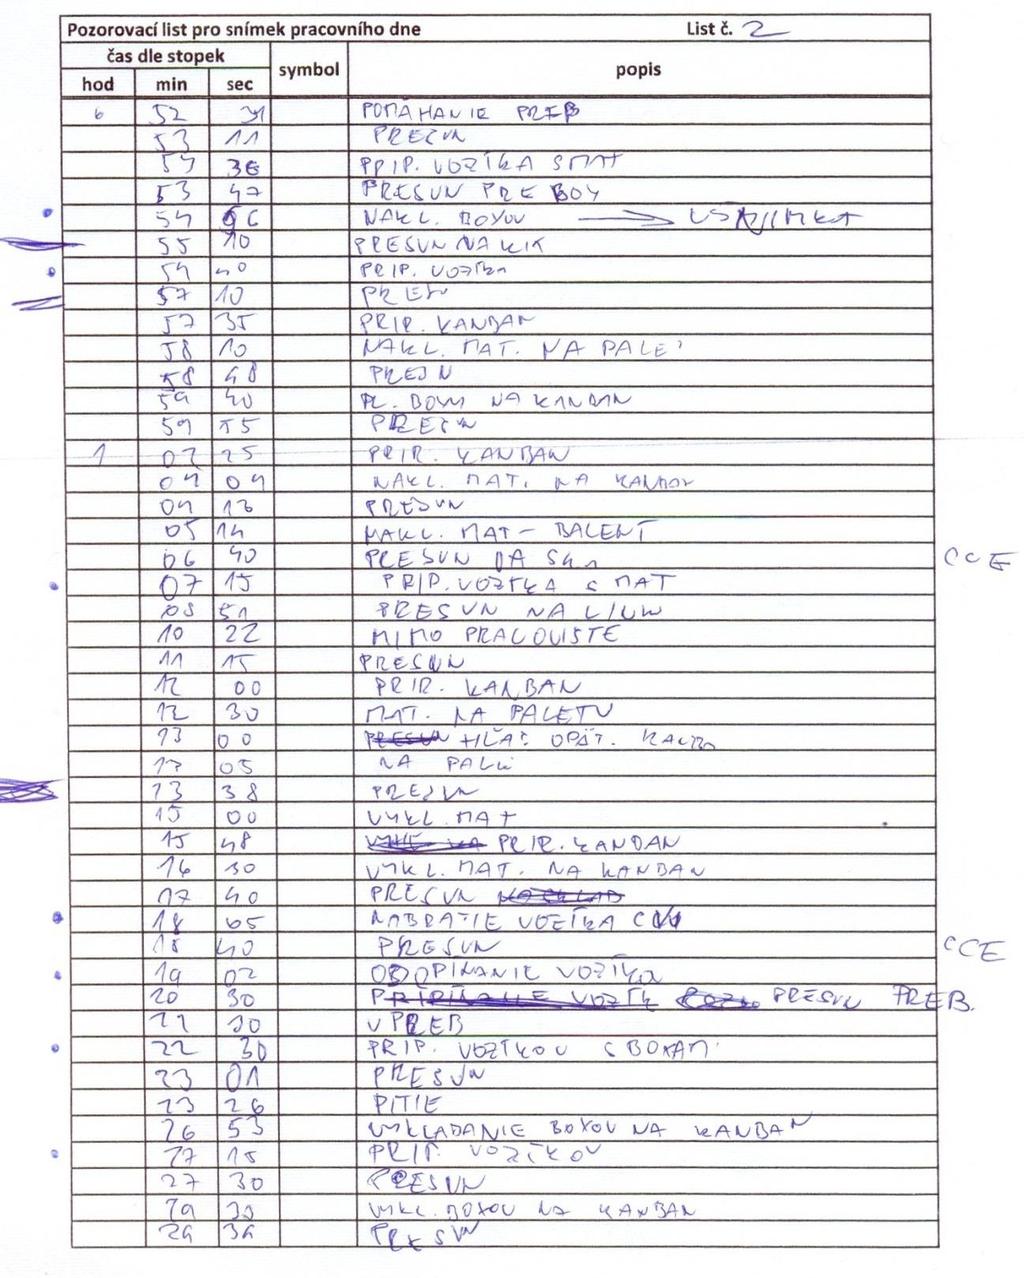 Pozorovací list pro snímek pracovního dne List č. 2
čas dle stopek symbol popis
hod min sec
6 52 POMÁHANIE PREB
53 11 PRESUN
54 36 PRIP. VOZÍKA S MAT
53 47 PRESUN PRE BOXY
54 NAKL. BOXOV
55 10 PRESUN NA
54 40 PRIP. VOZÍKA
57 10 PRESUN
57 35 PRIP. KANBAN
58 10 NAKL. MAT. NA PALE
58 48 PRESUN
59 40 PL. BOXY NA KANBAN
59 55 PRESUN
02 25 PRIP. KANBAN
04 04 NAKL. MAT. NA KANBAN
04 13 PRESUN
05 14 NAKL. MAT - BALENÍ
06 40 PRESUN CCE
07 15 PRIP. VOZÍKA S MAT
08 51 PRESUN NA
10 22 MIMO PRACOVISTE
11 15 PRESUN
12 00 PRIP. KANBAN
12 30 MAT. NA PALETU
13 00 OPÄT.
05 NA
13 38 PRESUN
15 00 VYKL. MAT
15 48 PRIP. KANBAN
16 30 VYKL. MAT. NA KANBAN
17 40 PRESUN
18 05 NABRATIE VOZÍKA
18 40 PRESUN CCE
19 02 ODOPÍNANIE VOZÍKA
20 30 PRESUN PREB.
30 V PREB
22 30 PRIP. VOZÍKOV S BOXAMI
23 01 PRESUN
23 26 PITIE
26 53 VYKLADANIE BOXOV NA KANBAN
27 15 PRIP. VOZÍKOV
27 30 PRESUN
29 30 VYKL. BOXOV NA KANBAN
29 39 PRESUN